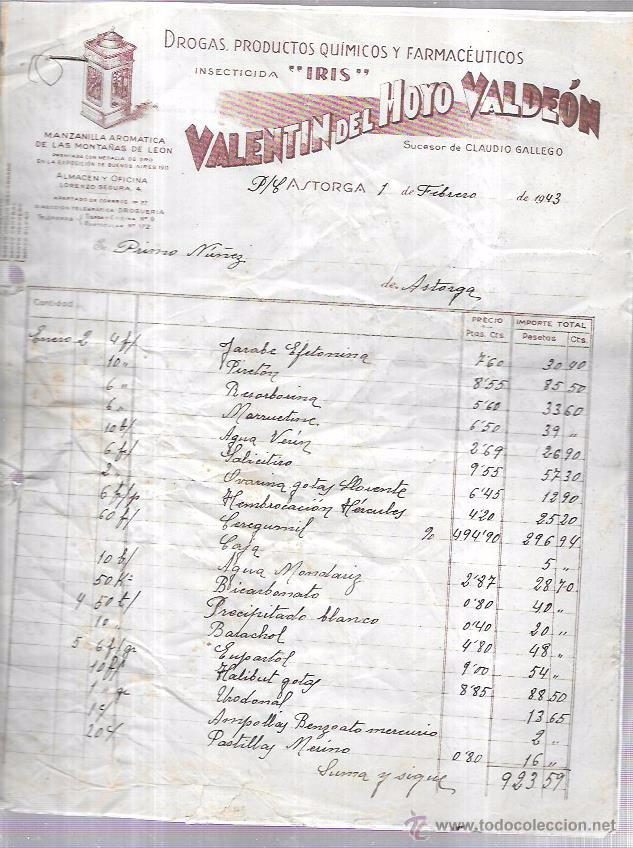 DROGAS, PRODUCTOS QUÍMICOS Y FARMACÉUTICOS
INSECTICIDA "IRIS"
VALENTIN DEL HOYO VALDEÓN
Sucesor de CLAUDIO GALLEGO
MANZANILLA AROMATICA
DE LAS MONTAÑAS DE LEON
PREMIADA CON MEDALLA DE ORO
EN LA EXPOSICIÓN DE BUENOS AIRES 1911
ALMACEN Y OFICINA
LORENZO SEGURA, 4
APARTADO DE CORREOS, Nº 27
DIRECCIÓN TELEGRÁFICA DROGUERIA
P/C ASTORGA 1 de Febrero de 1943
Primo Núñez
de Astorga
Cantidad PRECIO Ptas. Cts. IMPORTE TOTAL Pesetas Cts.
Enero 2 4 f/ Jarabe Efetonina 7'60 30 90
10 " Piretón 8'55 85 50
6 " 5'60 33 60
6 " 6'50 39 "
10 b/ Agua Verín 2'69 26 90
6 f/ 9'55 57 30
2 " Ovarina gotas Llorente 6'45 12 90
6 Hembrocación Hércules 4'20 25 20
60 f/ Ceregumil % 494'90 296 94
Caja 5 "
10 b/ Agua Mondariz 2'87 28 70
50 Bicarbonato 0'80 40 "
4 50 Precipitado blanco 0'40 20 "
10 4'80 48 "
5 6 f/ gr Eupartol 9'00 54 "
10 Halibut gotas 8'85 88 50
1 " gr Urodonal 13 65
Ampollas Benzoato mercurio 2 "
20 Pastillas Merino 0'80 16 "
Suma y sigue 923 59
www.todocoleccion.net